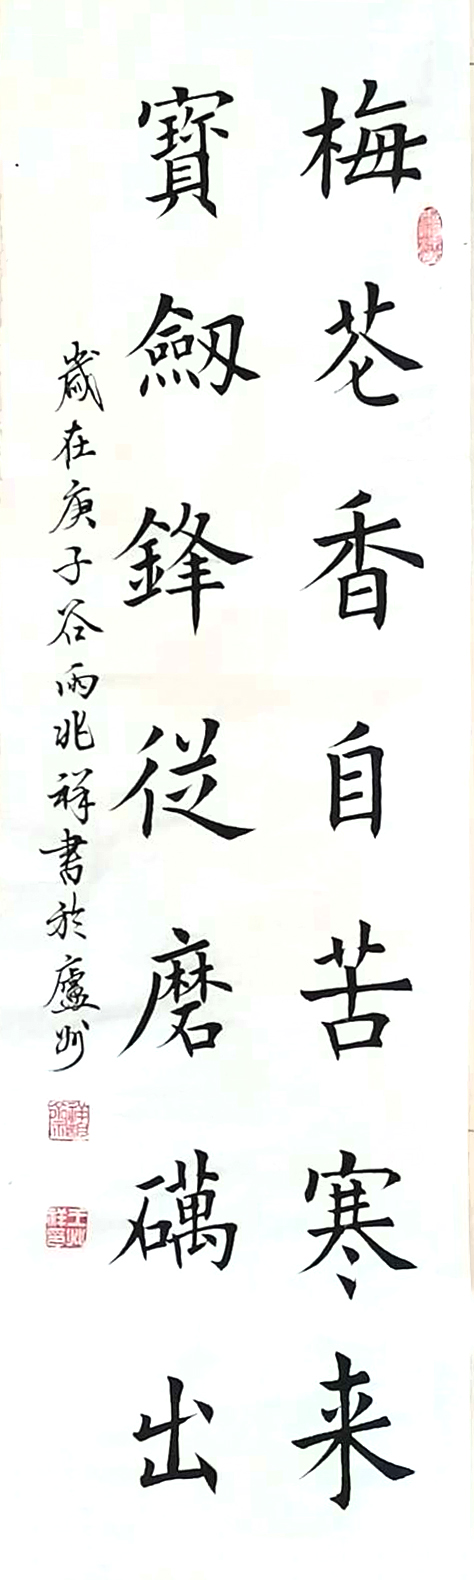 梅花香自苦寒来
寶劔鋒從磨礪出
歲在庚子谷雨兆祥書於廬州